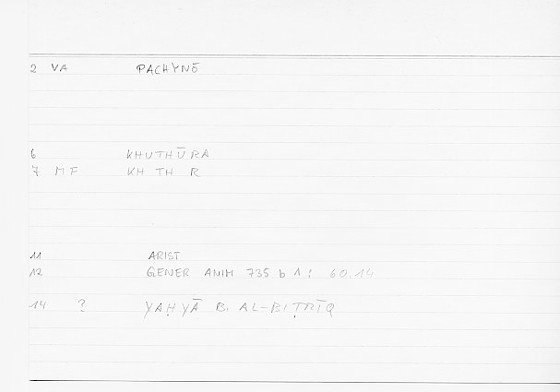 2 VA PACHYNŌ
6 KHUTHŪRA
7 MF KH TH R
11 ARIST
12 GENER ANIM 735 b 1 : 60.14
14 ? YAḤYĀ B. AL-BIṬRĪQ